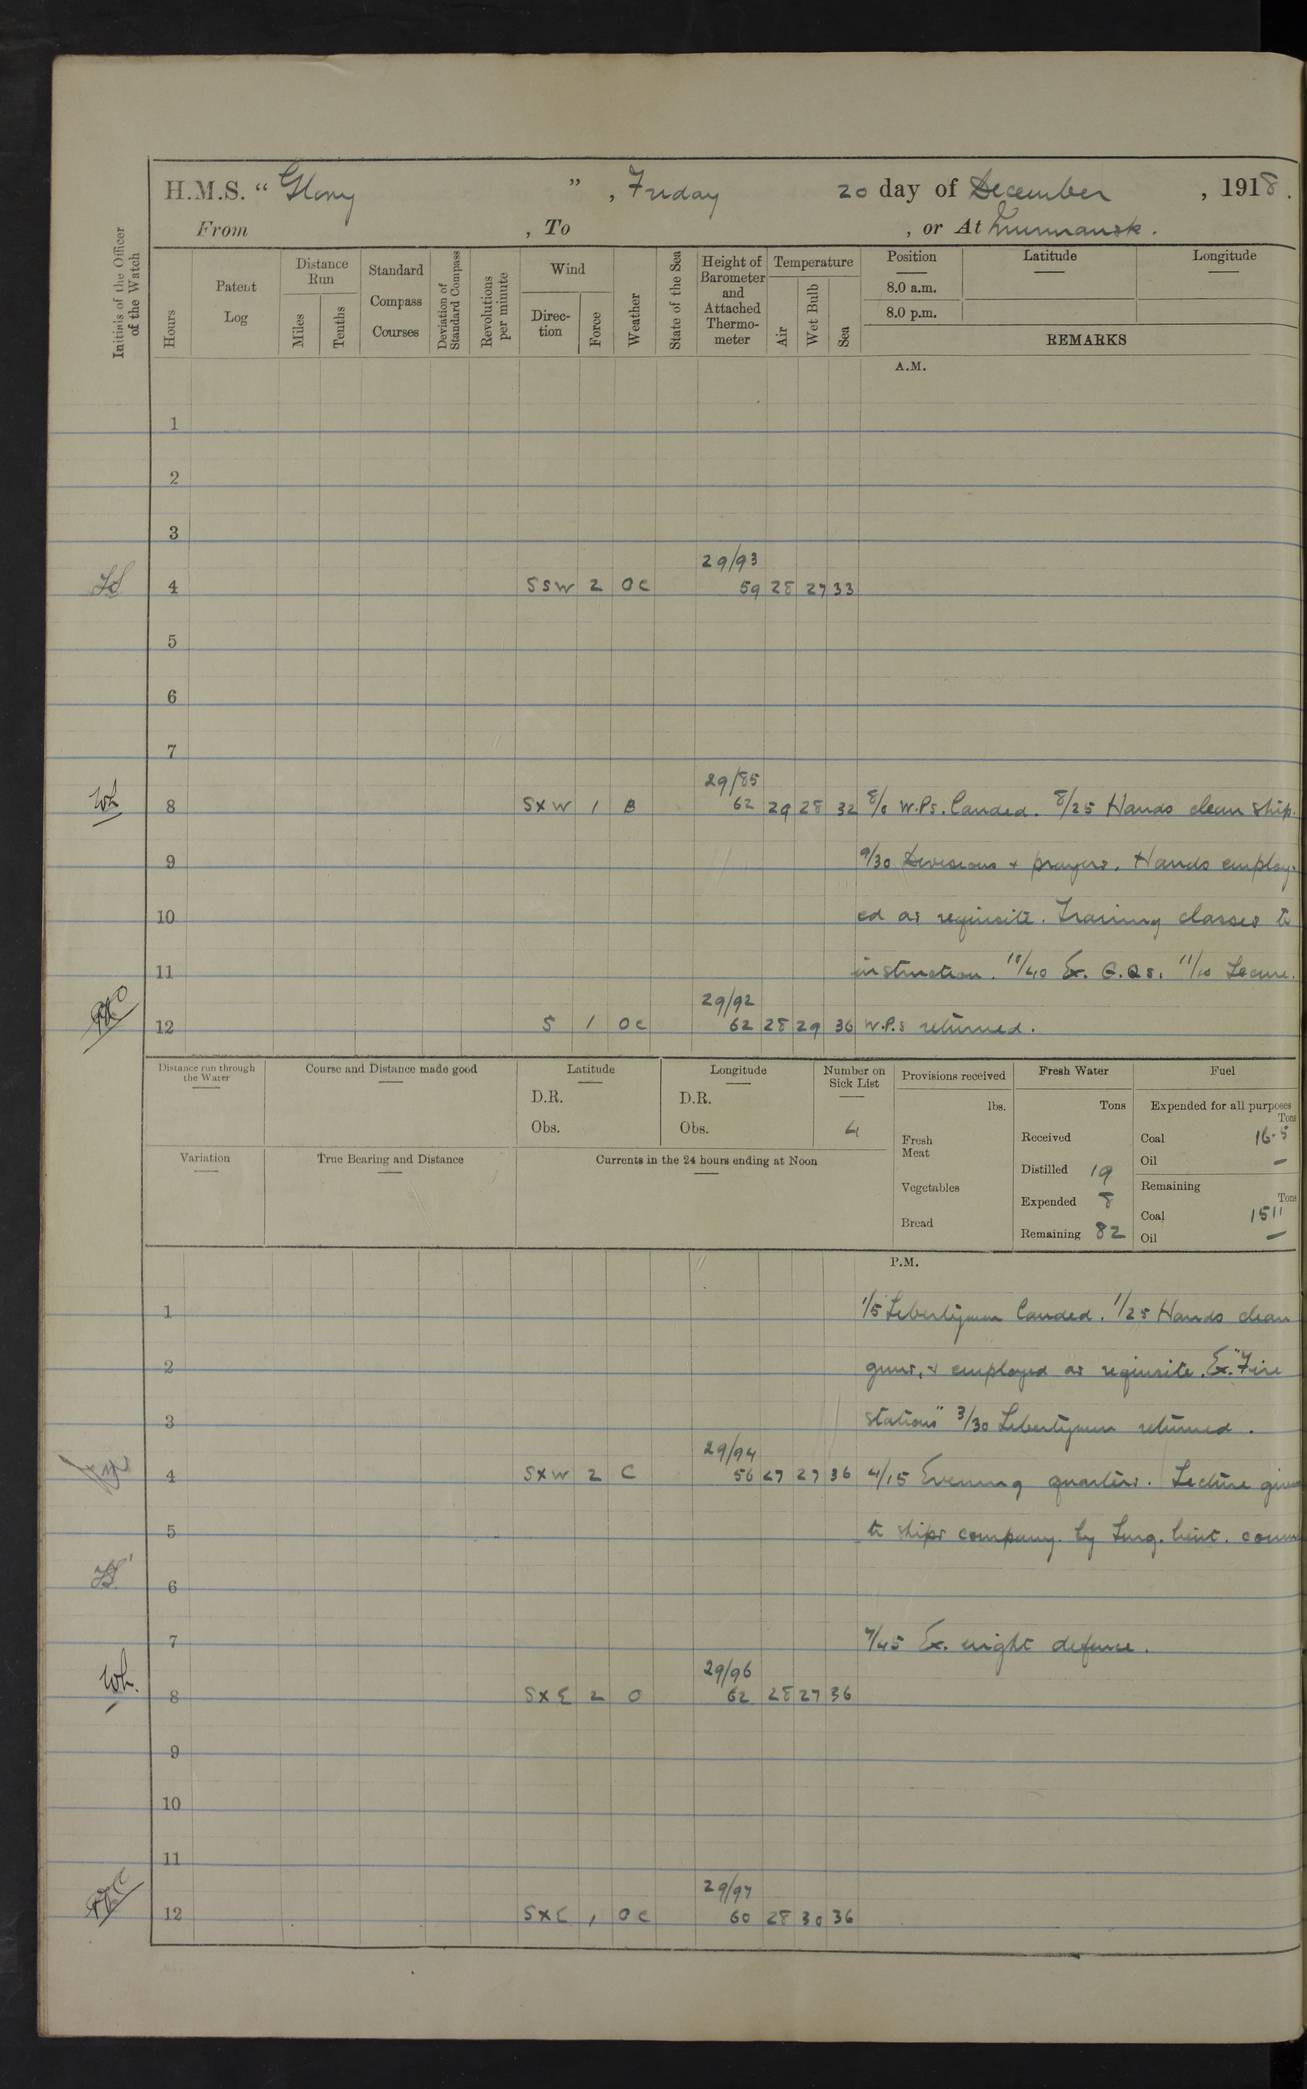 H.M.S. “ Glory ” , Friday 20 day of December , 1918.
From , To , or At Murmansk.
Initials of the Officer of the Watch
Hours
Patent Log
Distance Run
Miles
Tenths
Standard Compass Courses
Deviation of Standard Compass
Revolutions per minute
Wind
Direc-tion
Force
Weather
State of the Sea
Height of Barometer and Attached Thermo-meter
Temperature
Air
Wet Bulb
Sea
Position
8.0 a.m.
8.0 p.m.
Latitude
Longitude
REMARKS
A.M.
1
2
3
29/93
4 SSW 2 OC 59 28 27 33
5
6
7
29/85
8 SXW 1 B 62 29 28 32 8/0 W.Ps. landed. 8/25 Hands clean ship.
9 9/30 Divisions & prayers. Hands employ-
10 ed as requisite. Training classes to
11 instruction. 10/40 Ex. G.Qs. 11/10 Secure.
29/92
12 S 1 OC 62 28 29 36 W.P.s returned.
Distance run through the Water
Course and Distance made good
Latitude
D.R.
Obs.
Longitude
D.R.
Obs.
Number on Sick List
4
Variation
True Bearing and Distance
Currents in the 24 hours ending at Noon
Provisions received
lbs.
Fresh Meat
Vegetables
Bread
Fresh Water
Tons
Received
Distilled 19
Expended 8
Remaining 82
Fuel
Expended for all purposes
Tons
Coal 16.5
Oil —
Remaining
Tons
Coal 1511
Oil —
P.M.
1 1/5 Libertymen landed. 1/25 Hands clean
2 guns, & employed as requisite. Ex. "Fire
3 stations" 3/30 Libertymen returned.
29/94
4 SXW 2 C 56 27 27 36 4/15 Evening quarters. Lecture given
5 to ships company by Surg. Lieut. Comm
6
7 7/45 Ex. night defence.
29/96
8 SXE 2 O 62 28 27 36
9
10
11
29/97
12 SXE 1 OC 60 28 30 36